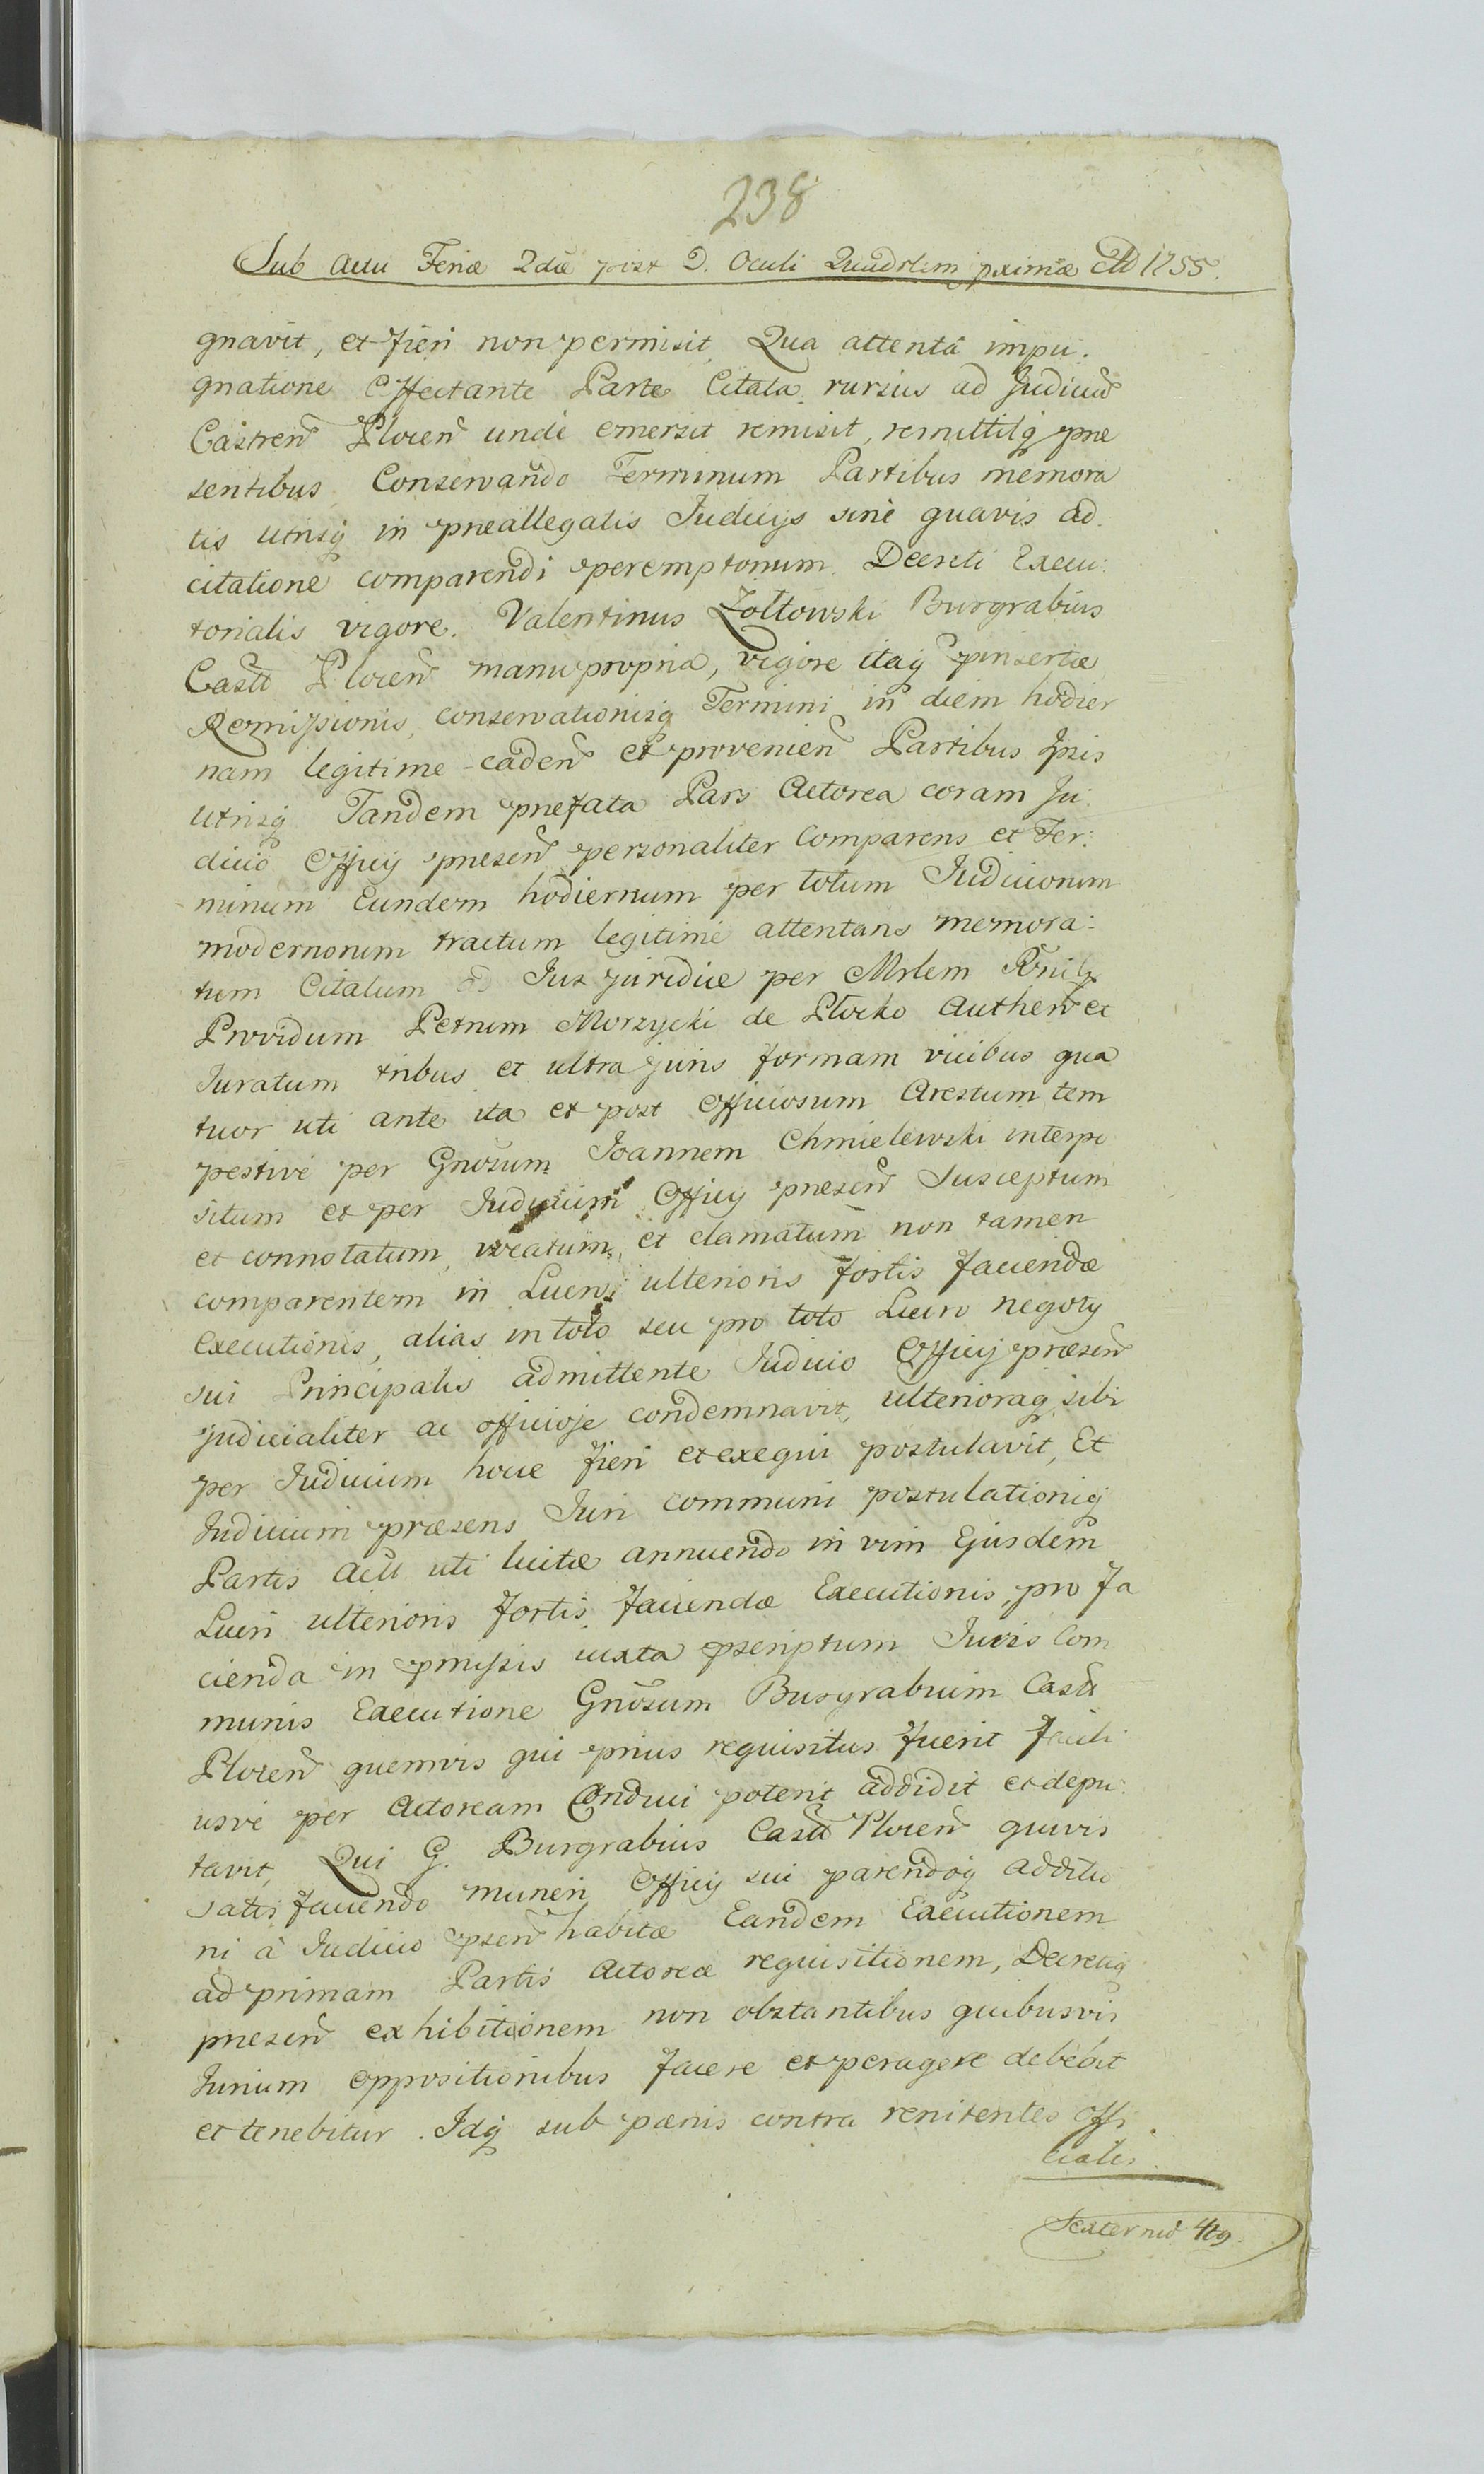 238
Sub Actu Feriæ 2dæ post D. Oculi Quadrlem pximæ AD 1755.
gnavit, et fieri non permisit. Qua attentâ impu:
gnatione Affectante Parte Citata rursus ad Judicium
Castreñ Ploceñ unde emersit remisit, remittitq præ
sentibus Conservando Terminum Partibus memora
tis utrisq in præallegatis Judicijs sine quavis ad
citatione comparendi peremptorium. Decreti Execu:
torialis vigore. Valentinus Zołtowski Burgrabius
Castr Plocen manu propria, vigore itaq pinsertæ
Remissionis, conservationisq Termini in diem hodier
nam legitime caden et provenien Partibus Ipsis
utrisq Tandem præfata Pars Actorea coram Ju:
dicio Officij præsen personaliter Comparens et Ter:
minum Eundem hodiernum per totum Judiciorum
modernorum tractum legitime attentans memora:
tum Citatum ad Jus juridice per Mrlem Rñilq
Providum Petrum Morzycki de Płocko Authen et
Juratum tribus et ultra juris formam vicibus qua
tuor uti ante ita et post Officiosum Arestum tem
pestive per Gnosum Joannem Chmielewski interpo
situm et per Judicium Officij præsen Susceptum
et connotatum, vocatum, et clamatum non tamen
comparentem in Lucro ulterioris fortis faciendæ
Executionis, alias in toto seu pro toto Lucro negotij
sui Principalis admittente Judicio Officij præsen
judicialiter ac officiose condemnavit, ulterioraq sibi
per Judicium hocce fieri et exequi postulavit, Et
Judicium præsens Juri communi postulationiq
Partis Actt uti licitæ annuendo in vim Ejusdem
Lucri ulterioris fortis faciendæ Executionis, pro fa
cienda in pmissis iuxta pscriptum Juris Com
munis Executione Gnosum Burgrabium Castr
Plocen quemvis qui prius requisitus fuerit facili
usve per Actoream Conduci poterit addidit et depu:
tavit, Qui G. Burgrabius Castr Plocen quivis
satisfaciendo muneri Officij sui parendoq additio
ni à Judicio psen habitæ Eandem Executionem
ad primam Partis Actoreæ requisitionem, Decretiq
præsen exhibitionem non obstantibus quibusvis
Jurium oppositionibus facere et peragere debebit
et tenebitur. Idq sub pænis contra renitentes offi
ciales.
Sexternio 4to